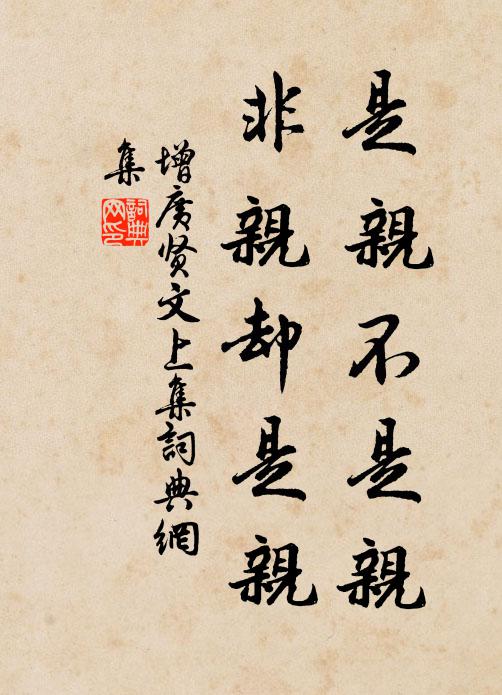 是親不是親
非親却是親
增廣贤文上集詞典網
集
詞典网印